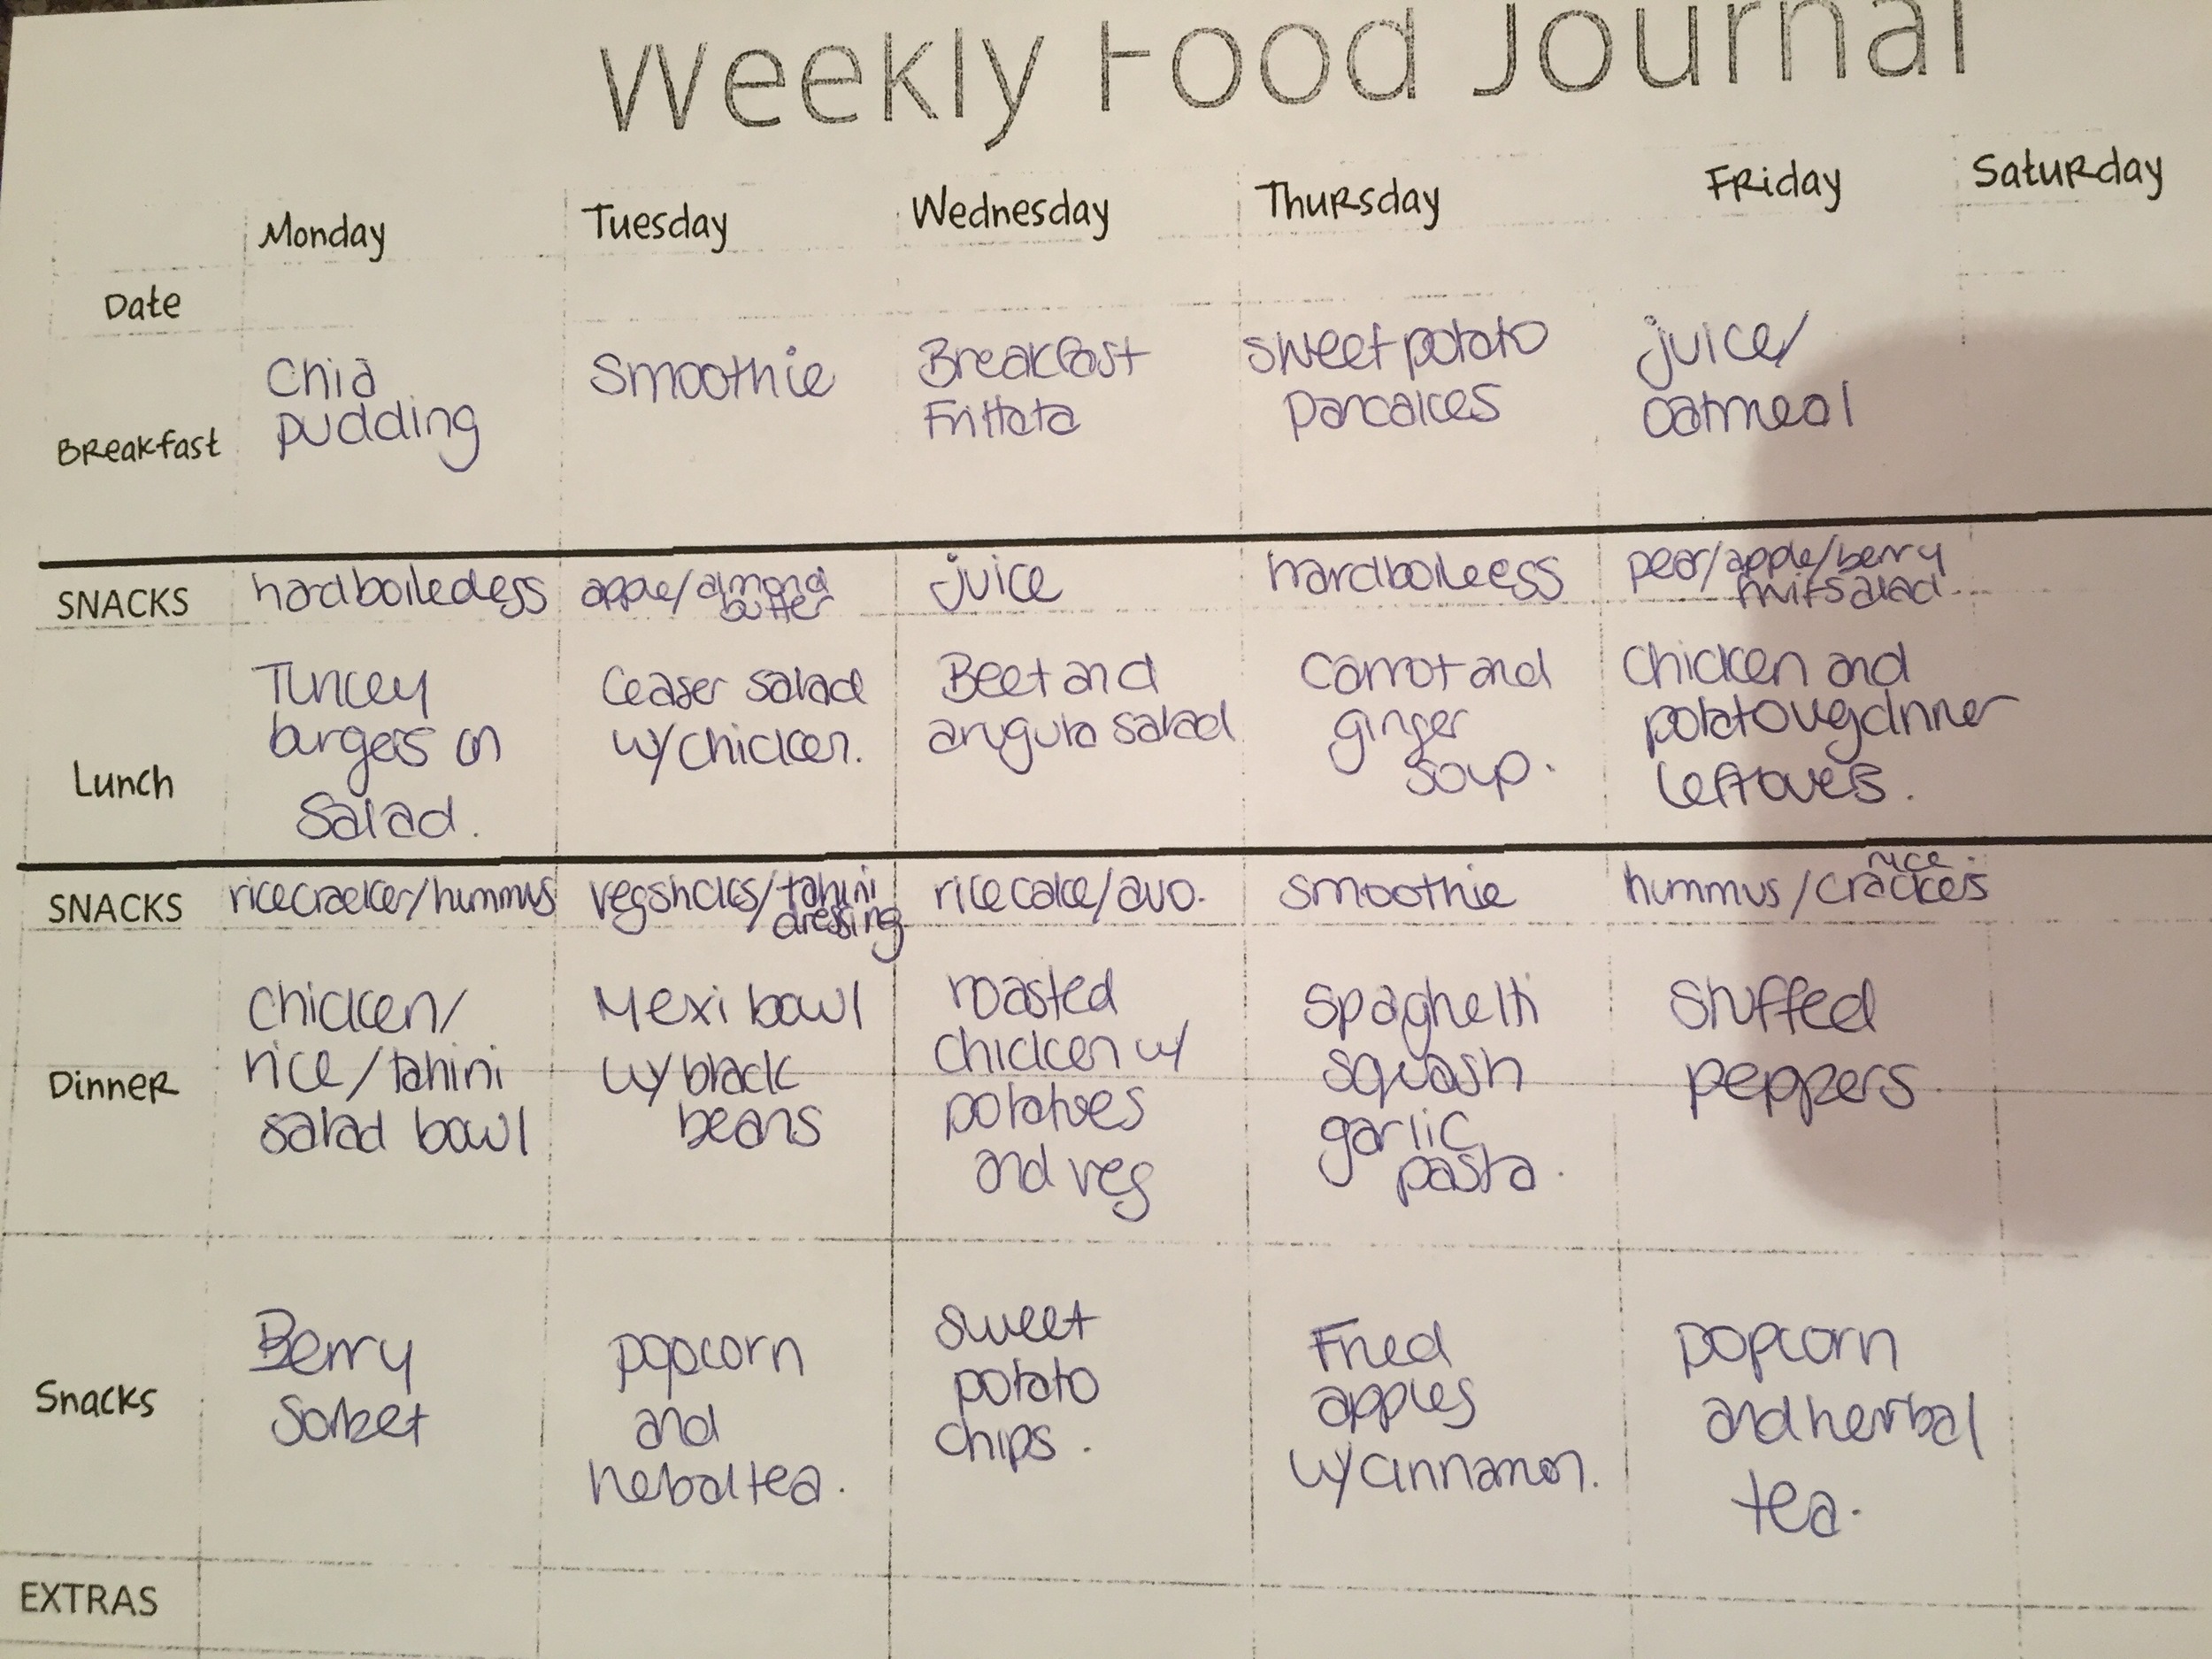 Weekly Food Journal
Monday Tuesday Wednesday Thursday Friday Saturday
Date
Breakfast
Chia
pudding
Smoothie
Breakfast
Frittata
sweet potato
pancakes
juice/
oatmeal
SNACKS
hardboiledegg
apple/almond
butter
juice
hardboileegg
pear/apple/berry
fruitsalad
Lunch
Turkey
burgers on
Salad.
Ceaser salad
w/chicken.
Beet and
arugula salad
Carrot and
ginger
soup.
Chicken and
potatovegdinner
leftovers.
SNACKS
ricecracker/hummus
vegsticks/tahini
dressing
rice cake/avo.
smoothie
hummus/crackers
rice
Dinner
Chicken/
rice/tahini
salad bowl
Mexi bowl
w/black
beans
roasted
chicken w/
potatoes
and veg
Spaghetti
squash
garlic
pasta.
Stuffed
peppers
Snacks
Berry
Sorbet
popcorn
and
hebaltea.
sweet
potato
chips.
Fried
apples
w/cinnamon.
popcorn
and herbal
tea.
EXTRAS